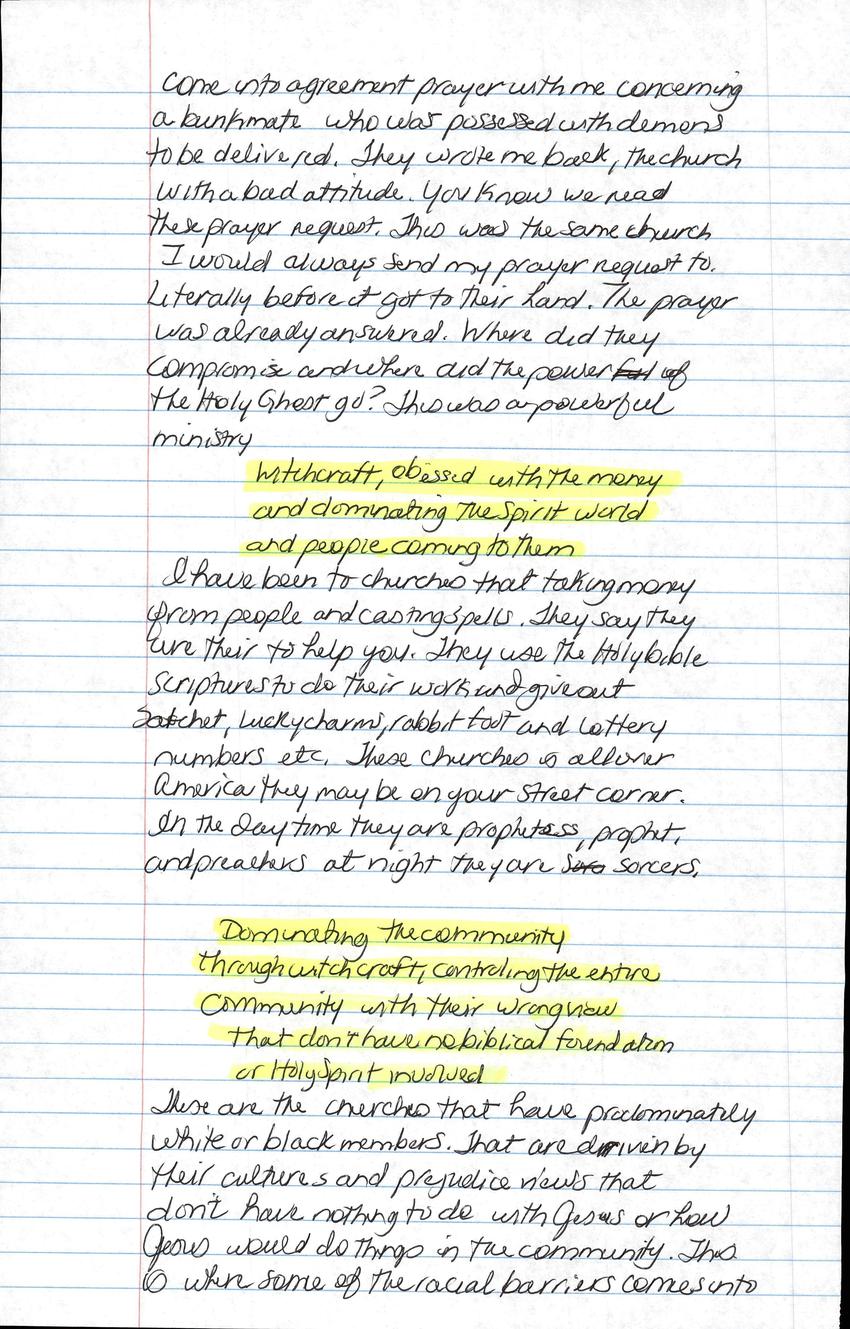 Come into agreement prayer with me concerning
a bunkmate who was possessed with demons
to be delivered. They wrote me back, the church
with a bad attitude. You know we read
these prayer request. This was the same church
I would always send my prayer request to.
Literally before it got to their hand. The prayer
was already answered. Where did they
compromise and where did the power of
the Holy Ghost go? This was a powerful
ministry
Witchcraft, obessed with the money
and dominating the Spirit world
and people coming to them
I have been to churches that taking money
from people and casting spells. They say they
are their to help you. They use the Holy bible
scriptures to do their work and give out
Satchet, lucky charms, rabbit foot and lottery
numbers etc. These churches is all over
America they may be on your street corner.
In the day time they are prophetess, prophet,
and preachers at night they are sorcers.
Dominating the community
through witchcraft, controling the entire
community with their wrong view
that don't have no biblical foundation
or Holy Spirit involved
These are the cherches that have prodominately
white or black members. That are driven by
their cultures and prejudice views that
don't have nothing to do with Jesus or how
Jesus would do things in the community. This
is where some of the racial barriers comes into